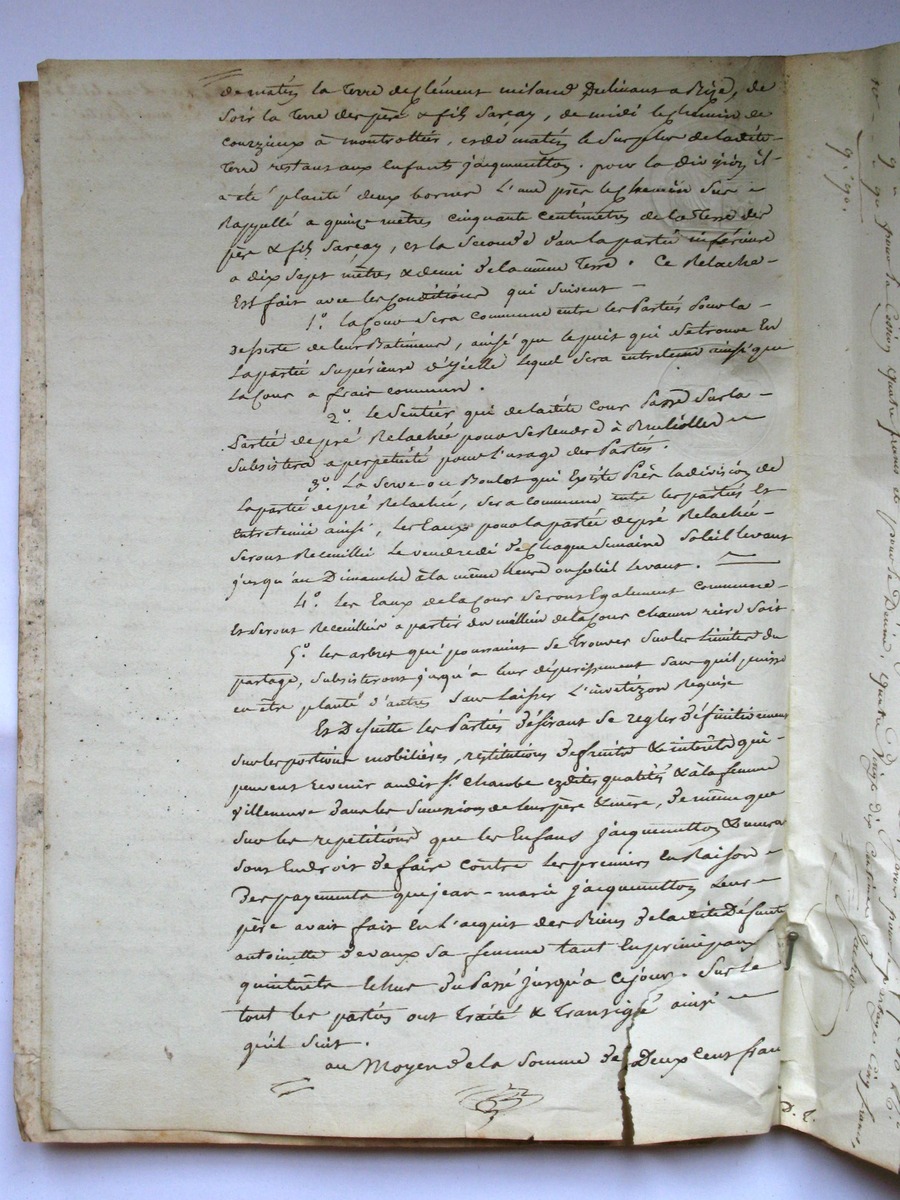 de matin la terre de Clément miland Dulinant a Bize, de
Soir la terre des père & fils Sarcay, de midi le chemin de
courzieux à montrottier, et de matin le Surplus de ladite
terre restant aux Enfants jacquemetton. pour la division il
a été planté deux bornes L'une près le chemin Sus =
Rappellé a quinze mètres cinquante centimètres de la terre des
père & fils Sarcay, et la Seconde dans la partie inférieure
a dix Sept mètres & demi de la même terre. Ce Relache
Est fait avec les Conditions qui Suivent =
1.° la Cour Sera commune entre les Parties Pour la =
desserte de leurs Batiments, ainsi que le puit qui Se trouve En
la partie Supérieure d'jcelle lequel Sera entretenu ainsi que
la Cour a frais communs.
2.° Le Sentier qui de ladite cour Passe Sur la =
Partie de pré Relachée pour Se Rendre à =
Subsistera a perpetuité pour l'usage des Parties.
3.° La Serve ou Boutos qui Existe Près la division de
la partie de pré Relachée, Sera commune entre les parties Et
Entretenue ainsi, les Eaux pour la partie de pré Relachée =
Seront Recueillies le vendredi de Chaque Semaine Soleil levant
jusqu'au Dimanche à la même heure ou Soleil levant.
4.° Les Eaux de la Cour Seront Egalement communes =
Et Seront Receuillies a partir du milieu de la Cour chacun rière Soit
5.° les arbres qui pourraient Se trouver Sur les Limites du
partage, Subsisteront jusqu'a leur déperissement Sans qu'il puisse
en etre planté d'autres Sans laisser L'invetizon Requise
Et De Suitte les Parties désirant Se regler définitivement
Sur les portions mobilières, restitutions de fruits & interets qui =
peuvent Revenir audit S.r Chambe ezdites qualités & à la femme
Villeneuve dans les Successions de leurs père & mère, de même que
Sur les repetitions que les Enfans jacquemetton &
Sont En droit de faire contre les premiers En Raison =
Des payements que jean = marie jacquemetton Leur =
père avait fait En l'acquit des Biens de ladite Défunte
antoinette Devaux Sa femme tant En principaux
qu'interets Echus Du Passé jusqu'a ce jour. Sur le
tout les parties ont Traité & Transigé ainsi =
qu'il Suit.
au Moyen de la Somme de Deux Cent fran
D. T.